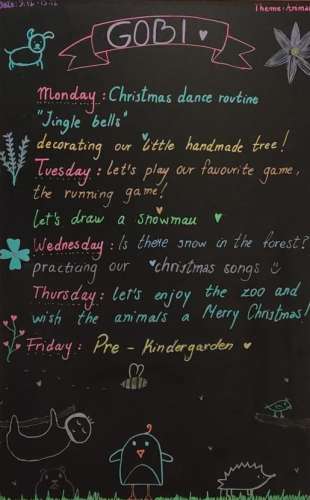 Theme: Animals
GOBI
Monday: Christmas dance routine
"Jingle bells"
decorating our little handmade tree!
Tuesday: let's play our favourite game,
the running game!
let's draw a snowman
Wednesday: Is there snow in the forest?
practicing our christmas songs
Thursday: let's enjoy the zoo and
wish the animals a Merry Christmas!
Friday: Pre-Kindergarden